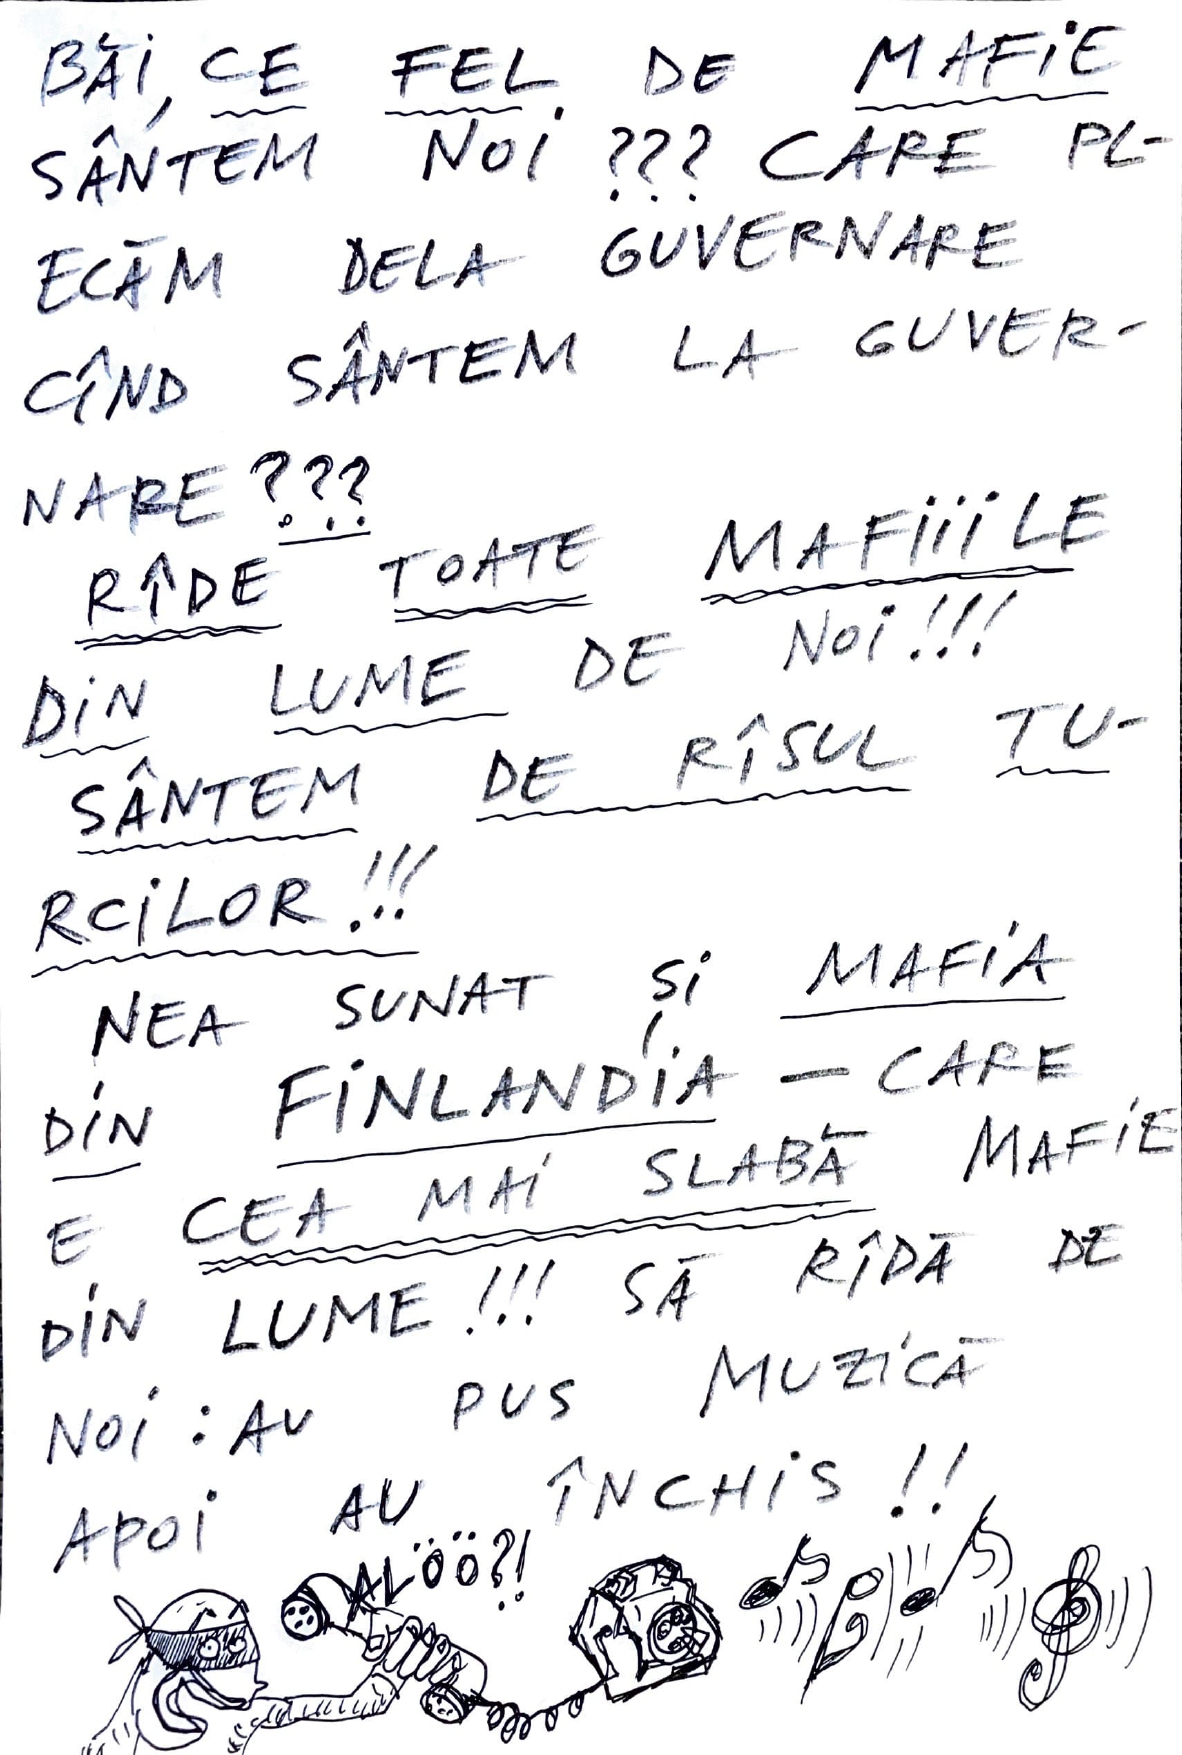 BĂI, CE FEL DE MAFIE
SÂNTEM NOI ??? CARE PL-
ECĂM DELA GUVERNARE
CÎND SÂNTEM LA GUVER-
NARE ???
RÎDE TOATE MAFIIILE
DIN LUME DE NOI!!!
SÂNTEM DE RÎSUL TU-
RCILOR!!!
NEA SUNAT ȘI MAFIA
DIN FINLANDIA – CARE
E CEA MAI SLABĂ MAFIE
DIN LUME!!! SĂ RÎDĂ DE
NOI: AU PUS MUZICĂ
APOI AU ÎNCHIS!!
ALÖÖ?!